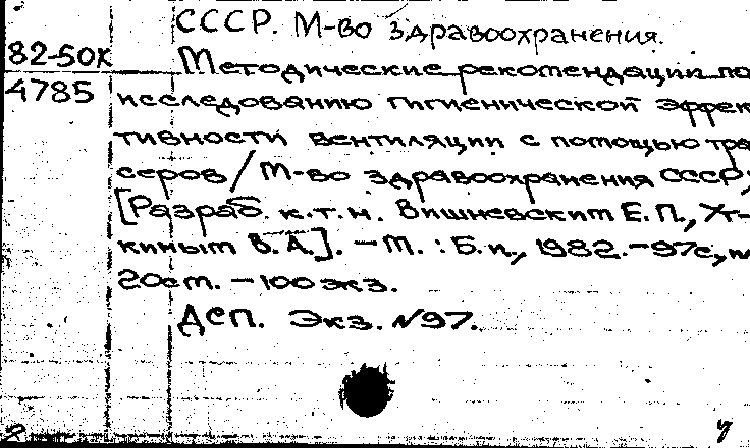 СССР. М-во здравоохранения.
82-50К Методические рекомендации по
4785 исследованию гигиенической эффек
тивности вентиляции с помощью тра
серов / М-во здравоохранения СССР;
[Разраб. к.т.н. Вишневским Е.П.,
киным В.А.]. - М. : Б.и., 1982. - 97с.,
20см. - 100 экз.
ДСП. Экз. №97.